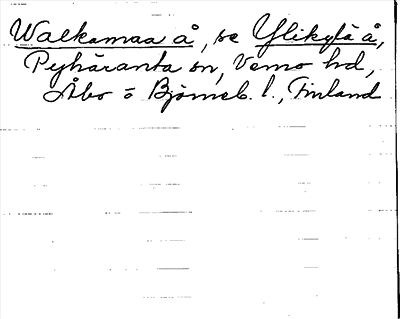 Walkamaa å, se Ylikylä å,
Pyhäranta sn, Vemo hd,
Åbo o Björneb. l., Finland